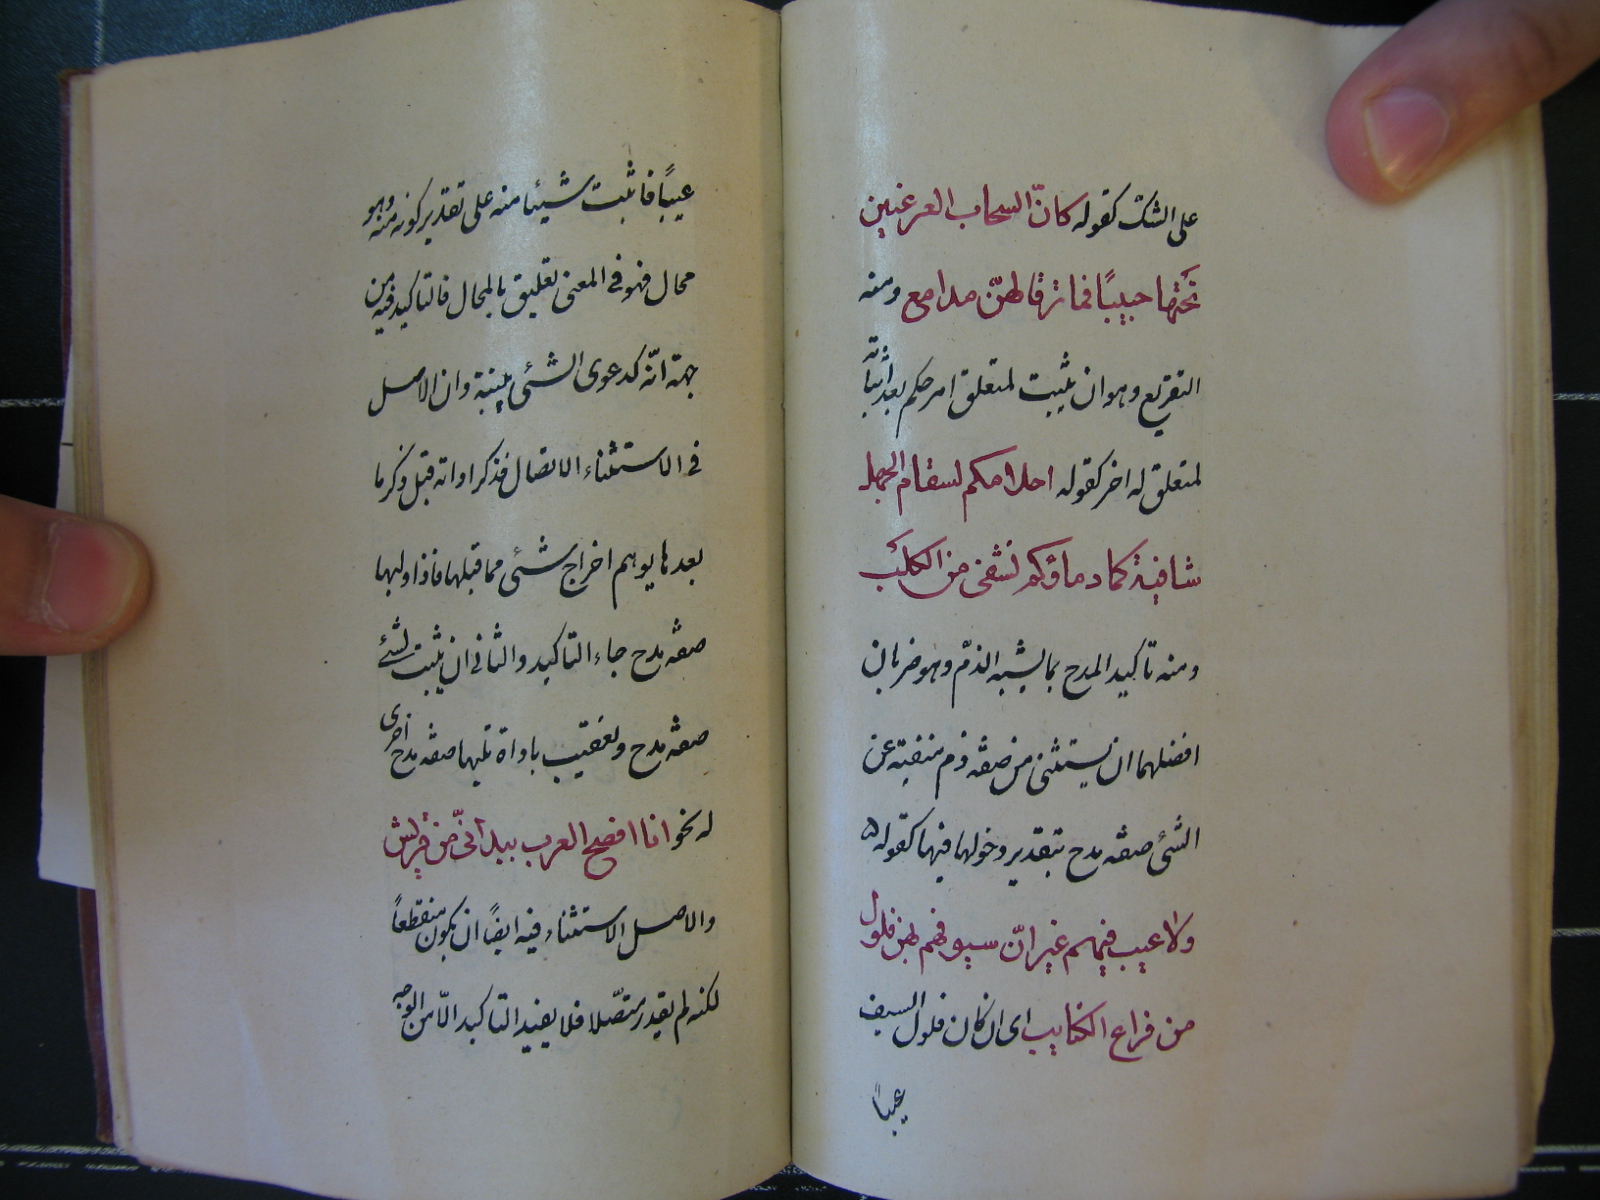 على الشك كقوله كانّ السحاب الغر غيبن
تحتها حبيبًا فما ترقا لهنّ مدامع ومنه
التفريع وهو ان يثبت لمتعلق امر حكم بعد اثباته
لمتعلق له اخر كقوله احلامكم لسقام الجهل
شافية كما دماؤكم تشفى من الكَلَب
ومنه تاكيد المدح بما يشبه الذمّ وهو ضربان
افضلهما ان يستثنى من صفة ذم منفية عن
الشئ صفة مدح بتقدير دخولها فيها كقوله
ولا عيب فيهم غير انّ سيوفهم بهن فلول
من قراع الكتايب اى ان كان فلول السيف
عيبًا
عيبًا فاثبت شيئا منه على تقدير كونه منه وهو
محال فهو فى المعنى تعليق بالمحال فالتاكيد فيه من
جهة انّه كدعوى الشئ ببينة وان الاصل
فى الاستثناء الاتصال فذكر اداته قبل ذكر ما
بعدها يوهم اخراج شئ مما قبلها فاذا وليها
صفة مدح جاء التاكيد والثانى ان يثبت لشئ
صفة مدح وتعقيب باداة تليها صفة مدح اخرى
له نحو انا افصح العرب بيد انىّ من قريش
والاصل الاستثناء فيه ايضًا ان يكون منقطعاً
لكنه لم يقدر متصّلا فلا يفيد التاكيد الاّ من الوجه